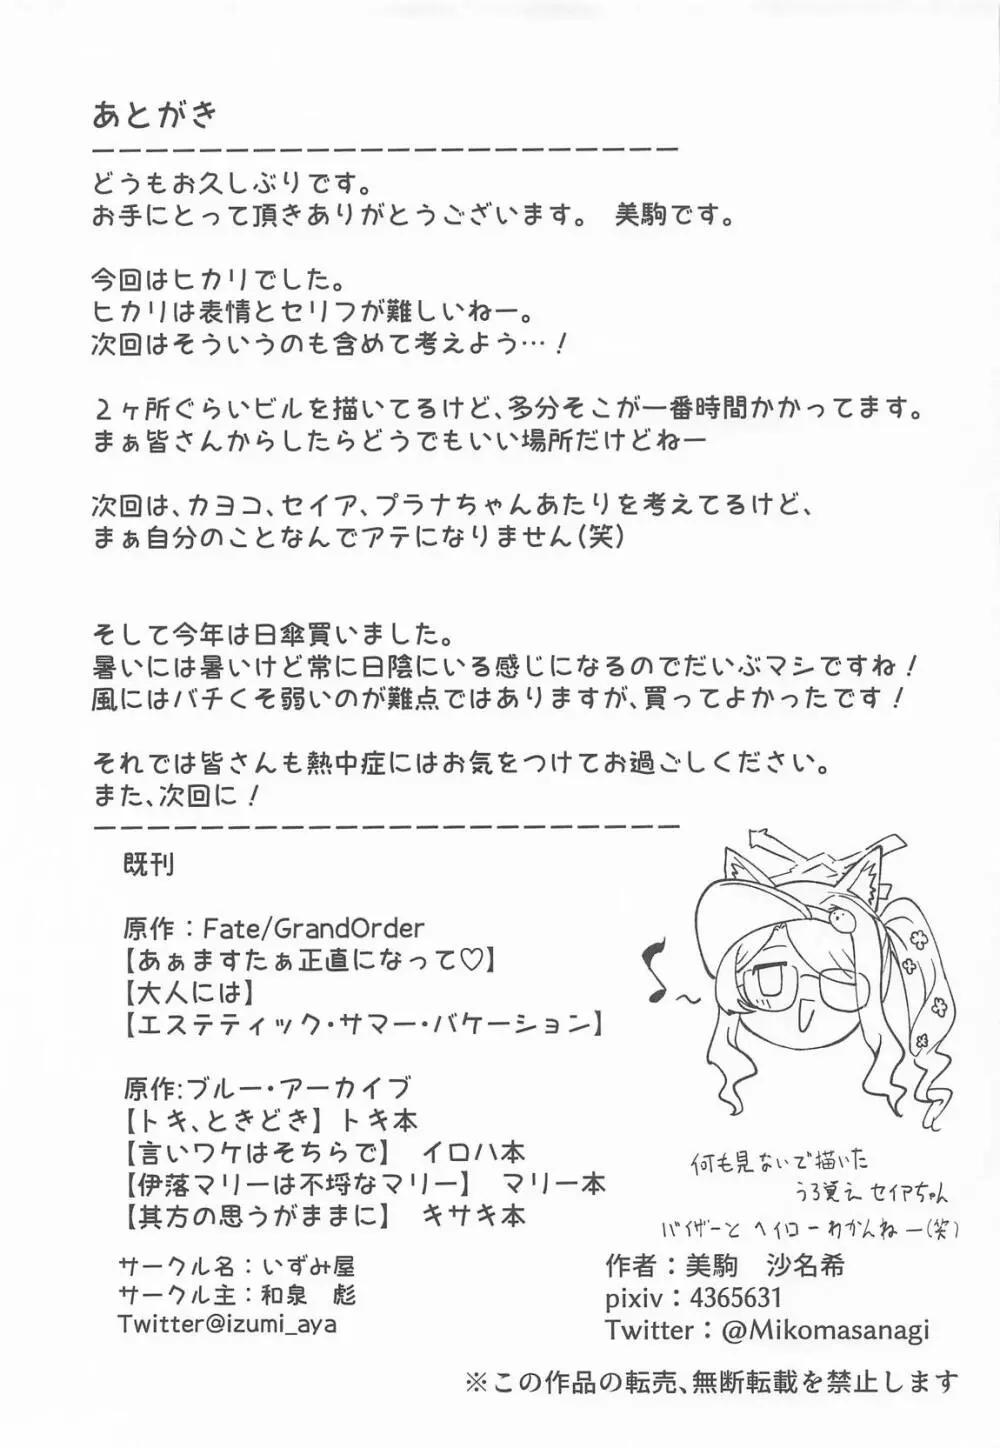 あとがき
どうもお久しぶりです。
お手にとって頂きありがとうございます。　美駒です。
今回はヒカリでした。
ヒカリは表情とセリフが難しいねー。
次回はそういうのも含めて考えよう…！
２ヶ所ぐらいビルを描いてるけど、多分そこが一番時間かかってます。
まぁ皆さんからしたらどうでもいい場所だけどねー
次回は、カヨコ、セイア、プラナちゃんあたりを考えてるけど、
まぁ自分のことなんでアテになりません(笑)
そして今年は日傘買いました。
暑いには暑いけど常に日陰にいる感じになるのでだいぶマシですね！
風にはバチくそ弱いのが難点ではありますが、買ってよかったです！
それでは皆さんも熱中症にはお気をつけてお過ごしください。
また、次回に！
既刊
原作：Fate/GrandOrder
【あぁますたぁ正直になって♡】
【大人には】
【エステティック・サマー・バケーション】
原作:ブルー・アーカイブ
【トキ、ときどき】トキ本
【言いワケはそちらで】　イロハ本
【伊落マリーは不埒なマリー】　マリー本
【其方の思うがままに】　キサキ本
何も見ないで描いた
うろ覚え セイアちゃん
バイザーと ヘイローわかんねー(笑)
サークル名：いずみ屋
サークル主：和泉　彪
Twitter@izumi_aya
作者：美駒　沙名希
pixiv：4365631
Twitter：@Mikomasanagi
※この作品の転売、無断転載を禁止します